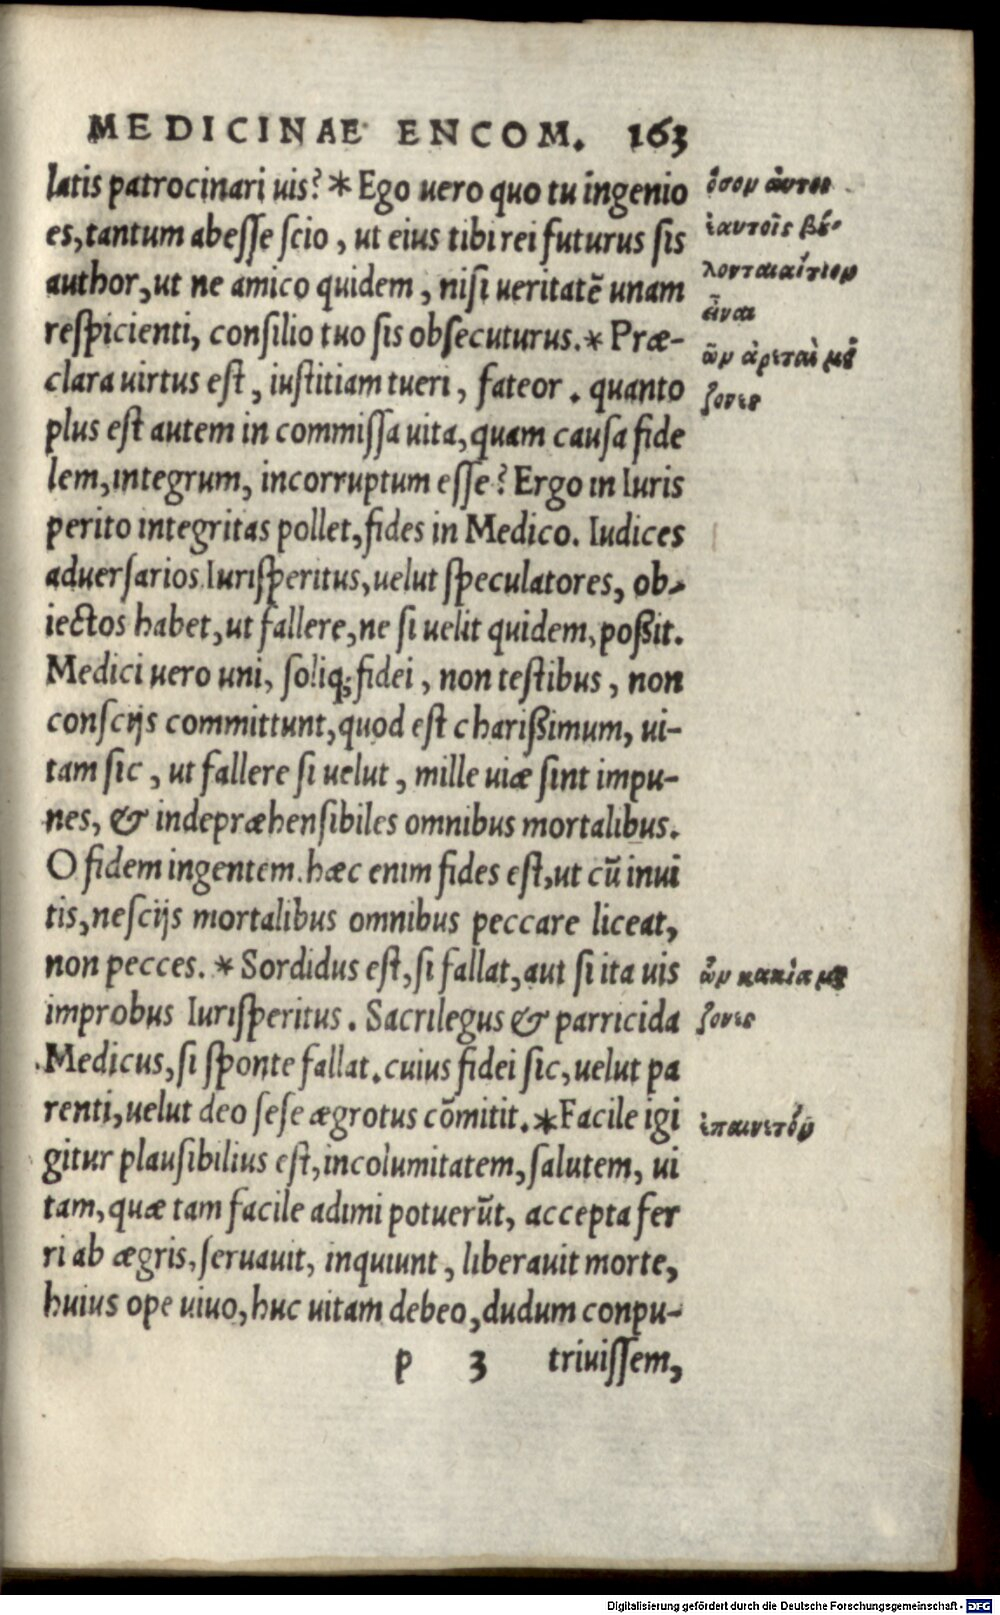 MEDICINAE ENCOM. 163
latis patrocinari uis? * Ego uero quo tu ingenio
es, tantum abesse scio, ut eius tibi rei futurus sis
author, ut ne amico quidem, nisi ueritatē unam
respicienti, consilio tuo sis obsecuturus. * Præ-
clara uirtus est, iustitiam tueri, fateor. quanto
plus est autem in commissa uita, quam causa fide
lem, integrum, incorruptum esse? Ergo in Iuris
perito integritas pollet, fides in Medico. Iudices
aduersarios Iurisperitus, uelut speculatores, ob-
iectos habet, ut fallere, ne si uelit quidem, poßit.
Medici uero uni, soliq; fidei, non testibus, non
conscijs committunt, quod est charißimum, ui-
tam sic, ut fallere si uelut, mille uiæ sint impu-
nes, & indepræhensibiles omnibus mortalibus.
O fidem ingentem. hæc enim fides est, ut cū inui
tis, nescijs mortalibus omnibus peccare liceat,
non pecces. * Sordidus est, si fallat, aut si ita uis
improbus Iurisperitus. Sacrilegus & parricida
Medicus, si sponte fallat. cuius fidei sic, uelut pa
renti, uelut deo sese ægrotus cōmitit. * Facile igi
gitur plausibilius est, incolumitatem, salutem, ui
tam, quæ tam facile adimi potuerūt, accepta fer
ri ab ægris, seruauit, inquiunt, liberauit morte,
huius ope uiuo, huc uitam debeo, dudum conpu-
p 3 triuissem,
ὅσον
ἑαυτοῖς βέ-
λονται αἴτιον
εἶναι
ὧν ἀρεταὶ μεί
ζονες
ὧν κακία μεί
ζονες
ἐπαινετόν
Digitalisierung gefördert durch die Deutsche Forschungsgemeinschaft - DFG